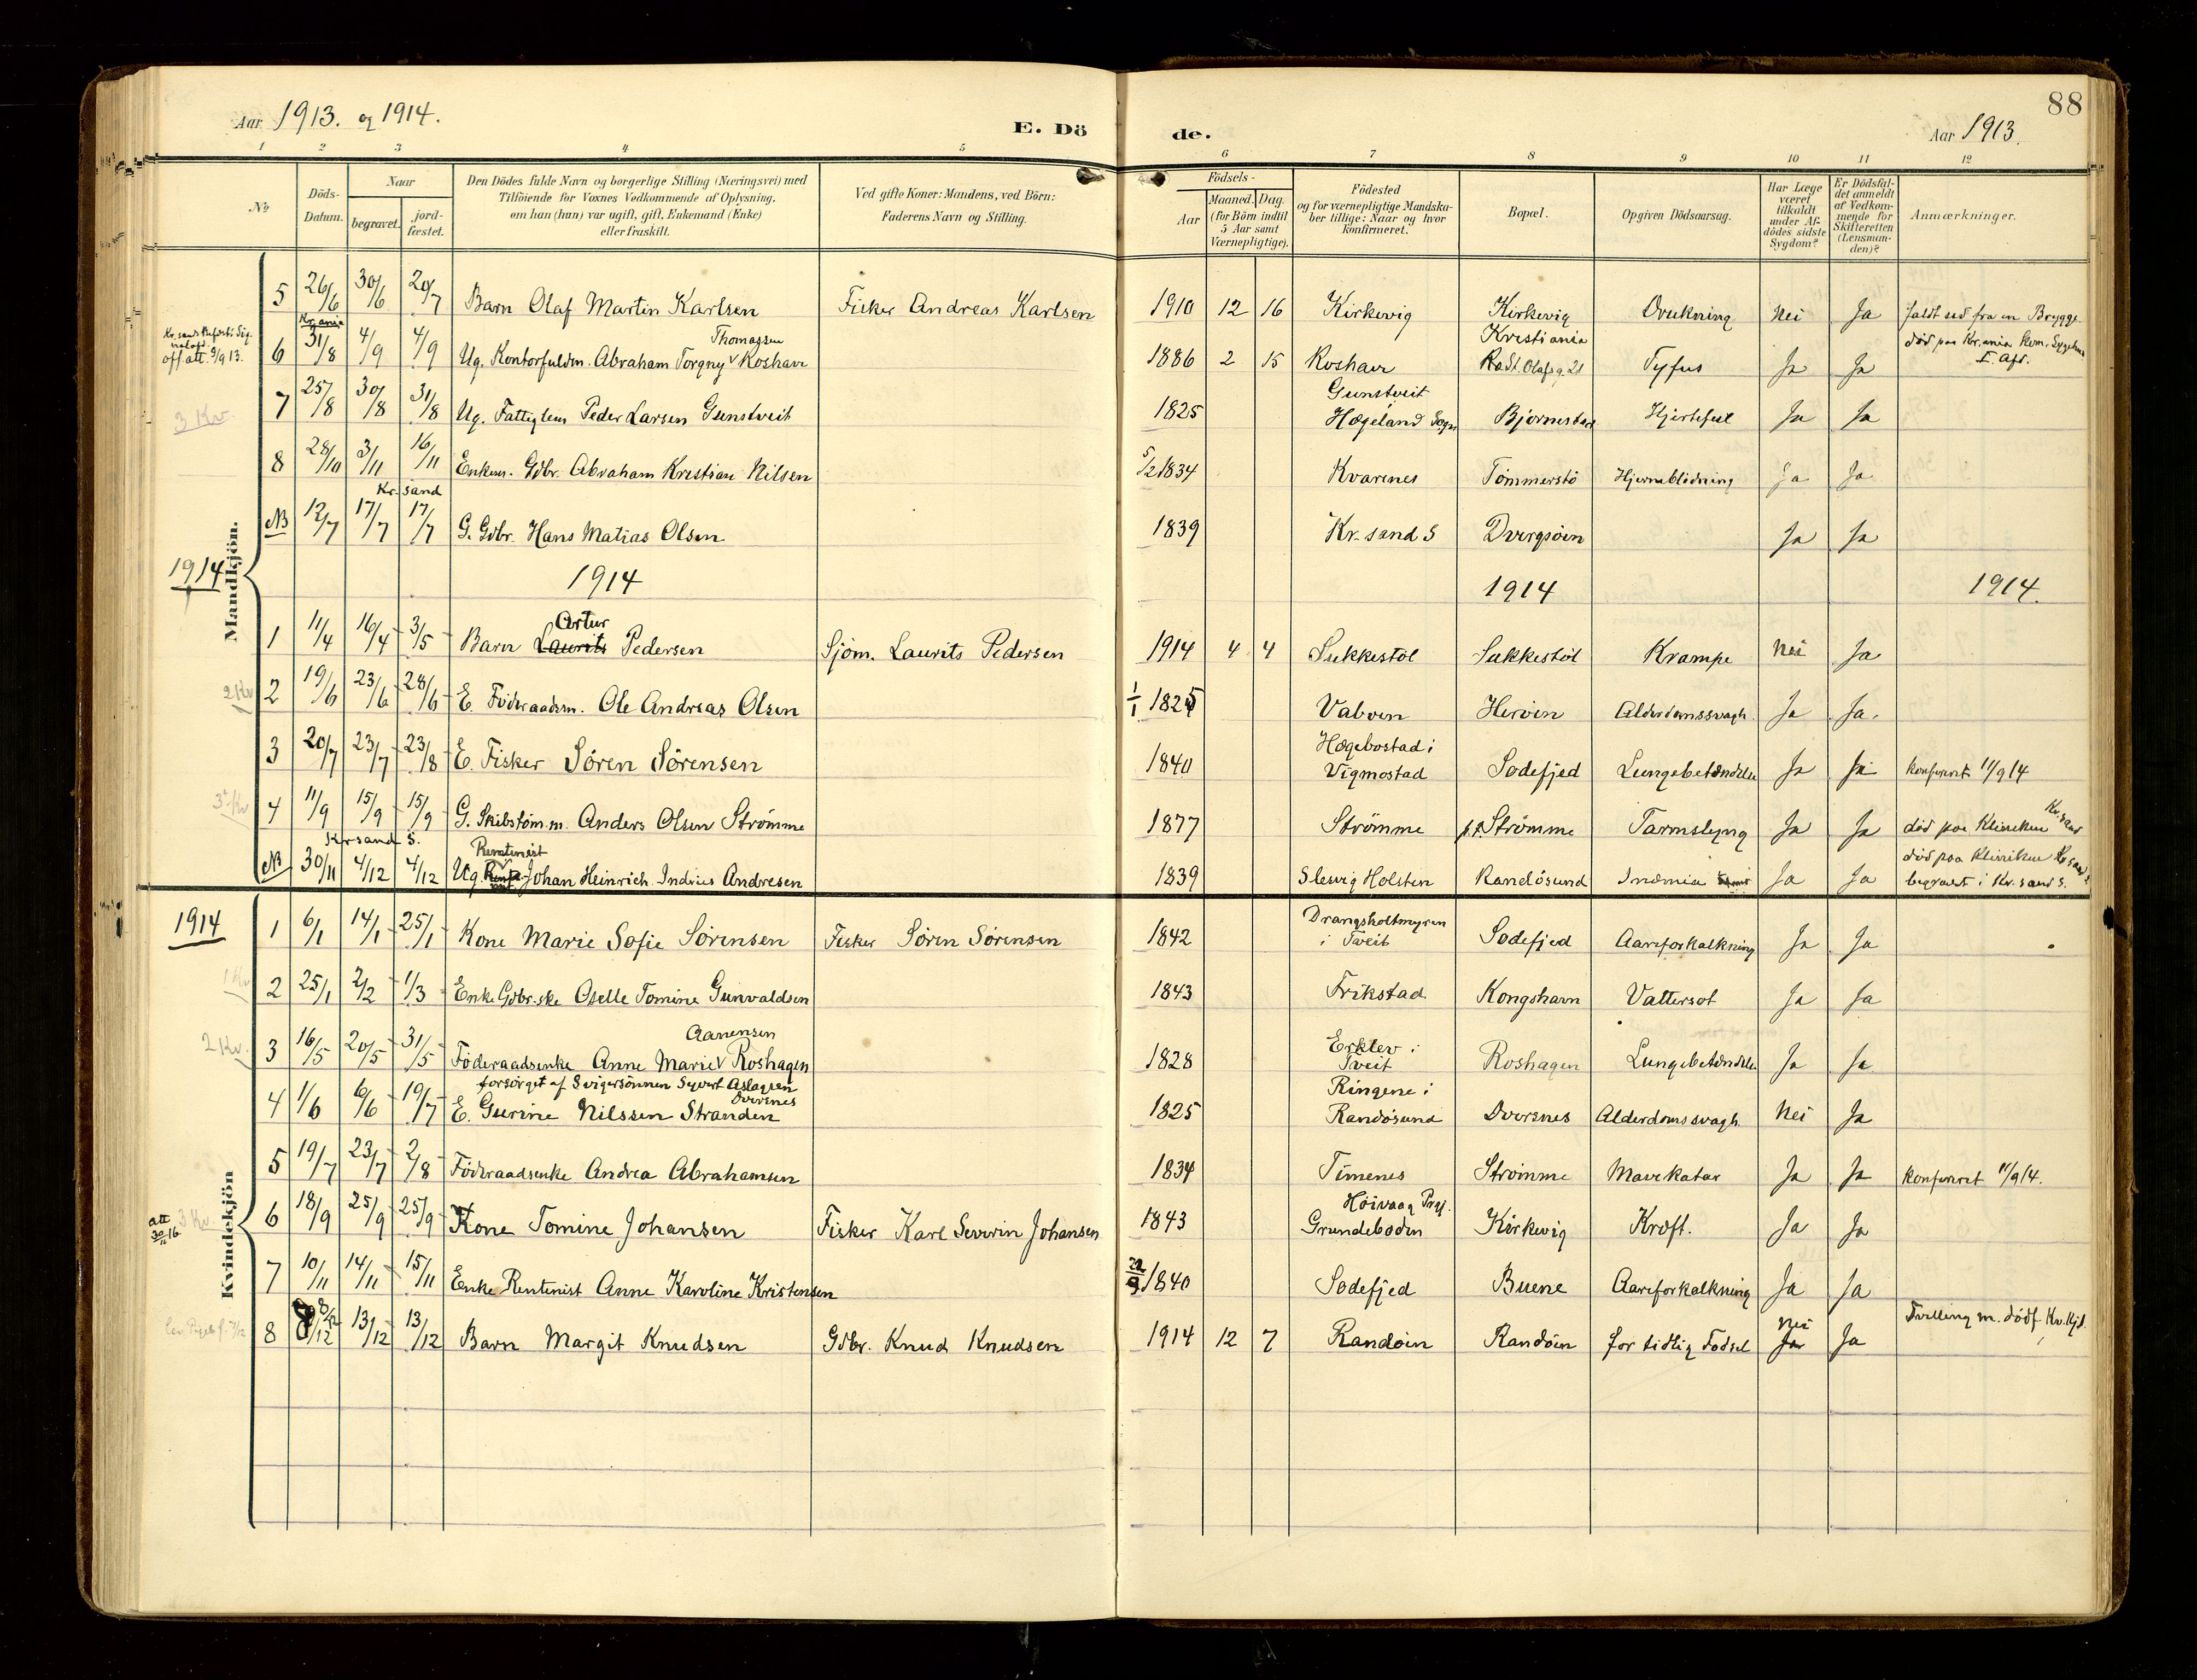 88
Aar 1913. og 1914.
E. Dö
de.
Aar 1913.
1 2 3 4 5 6 7 8 9 10 11 12
No
Döds-Datum.
Naar
begravet.
jord-fæstet.
Den Dödes fulde Navn og borgerlige Stilling (Næringsvei) med
Tilföiende for Voxnes Vedkommende af Oplysning,
om han (hun) var ugift, gift, Enkemand (Enke)
eller fraskilt.
Ved gifte Koner: Mandens, ved Börn:
Faderens Navn og Stilling.
Födsels-
Aar
Maaned. Dag.
(for Börn indtil
5 Aar samt
Værnepligtige).
Födested
og for værnepligtige Mandska-
ber tillige: Naar og hvor
konfirmeret.
Bopæl.
Opgiven Dödsaarsag.
Har Læge
været
tilkaldt
under Af-
dödes sidste
Sygdom?
Er Dödsfal-
det anmeldt
af Vedkom-
mende for
Skifteretten
(Lensman-
den)?
Anmærkninger.
Mandkjön.
5 26/6 30/6 20/7 Barn Olaf Martin Karlsen Fisker Andreas Karlsen 1910 12 16 Kirkevig Kirkevig Drukning Nei Ja faldt ned fra en Brygge
off att. 9/9 13.
Kr.ania
6 31/8 4/9 4/9 Ug. Kontorfuldm. Abraham Torgny v Thomassen Roshavn 1886 2 15 Roshavn Kristiania St. Olafsg. 21 Tyfus Ja Ja død paa Kr.ania Kom. Sygehus I. Afd.
3 Kv.
7 25/8 30/8 31/8 Ug. Fattiglem Peder Larsen Gunstveit 1825 Gunstveit i Hægeland Sogn Bjørnestad Hjertefeil Ja Ja
8 28/10 3/11 16/11 Enkem. Gdbr. Abraham Kristian Nilsen 5/2 1834 Kvarenes Tømmerstø Hjerneblødning Ja Ja
Kr.sand
NB 12/7 17/7 17/7 G. Gdbr. Hans Matias Olsen 1839 Kr.sand S Dvergsøin Ja Ja
1914 1914 1914 1914.
1 11/4 16/4 3/5 Barn Laurits Artur Pedersen Sjøm. Laurits Pedersen 1914 4 4 Sukkestøl Sukkestøl Krampe Nei Ja
2 Kv
2 19/6 23/6 28/6 E. Føderaadsm. Ole Andreas Olsen 1/1 1825 Valøen Herøen Alderdomssvagh. Ja Ja.
3 20/7 23/7 23/8 E. Fisker Søren Sørensen 1840 Hægebostad i Vigmostad Sodefjed Lungebetændelse Ja Ja konfereret 11/9 14
3 Kv
4 11/9 15/9 15/9 G. Skibstøm.m. Anders Olsen Strømme 1877 Strømme Strømme Tarmslyng Ja Ja død paa Kliniken Kr.sand
Kr.sand S.
NB 30/11 4/12 4/12 Ug. Rentenist Johan Heinrich Indries Andresen 1839 Slesvig Holsten Randøsund Ja Ja død paa Kliniken Kr.sand S. begravet i Kr.sand S.
Kvindekjön
1914
1 6/1 14/1 25/1 Kone Marie Sofie Sørensen Fisker Søren Sørensen 1842 Drangsholtmyren i Tveit Sodefjed Aareforkalkning Ja Ja
1 Kv
2 25/1 2/2 1/3 Enke Gdbr.ske Oselle Tomine Gunvaldsen 1843 Frikstad Kongshavn Vattersot Ja Ja
2 Kv.
3 16/5 20/5 31/5 Føderaadsenke Anne Marie v Aanensen Roshagen 1828 Erklev i Tveit Roshagen Lungebetændelse Ja Ja
forsørget af Svigersønnen Syvert Aslagsen Dversnes
4 1/6 6/6 19/7 E. Gurine Nilssen Stranden 1825 Ringene i Randøsund Dversnes Alderdomssvagh. Nei Ja
5 19/7 23/7 2/8 Føderaadsenke Andrea Abrahamsen 1834 Timenes Strømme Mavekatar Ja Ja konfereret 11/9 14.
att 30/11 16. 3 Kv.
6 18/9 25/9 25/9 Kone Tomine Johansen Fisker Karl Severin Johansen 1843 Høivaag Pregj. Grundeboden Kirkevig Kræft. Ja Ja
7 10/11 14/11 15/11 Enke Rentenist Anne Karoline Kristensen 22/9 1840 Sodefjed Buene Aareforkalkning Ja Ja
8 8/12 13/12 13/12 Barn Margit Knudsen Gdbr. Knud Knudsen 1914 12 7 Randøin Randøin for tidlig Fødsel Nei Ja Tvilling m. dødf. Kv.kjd.